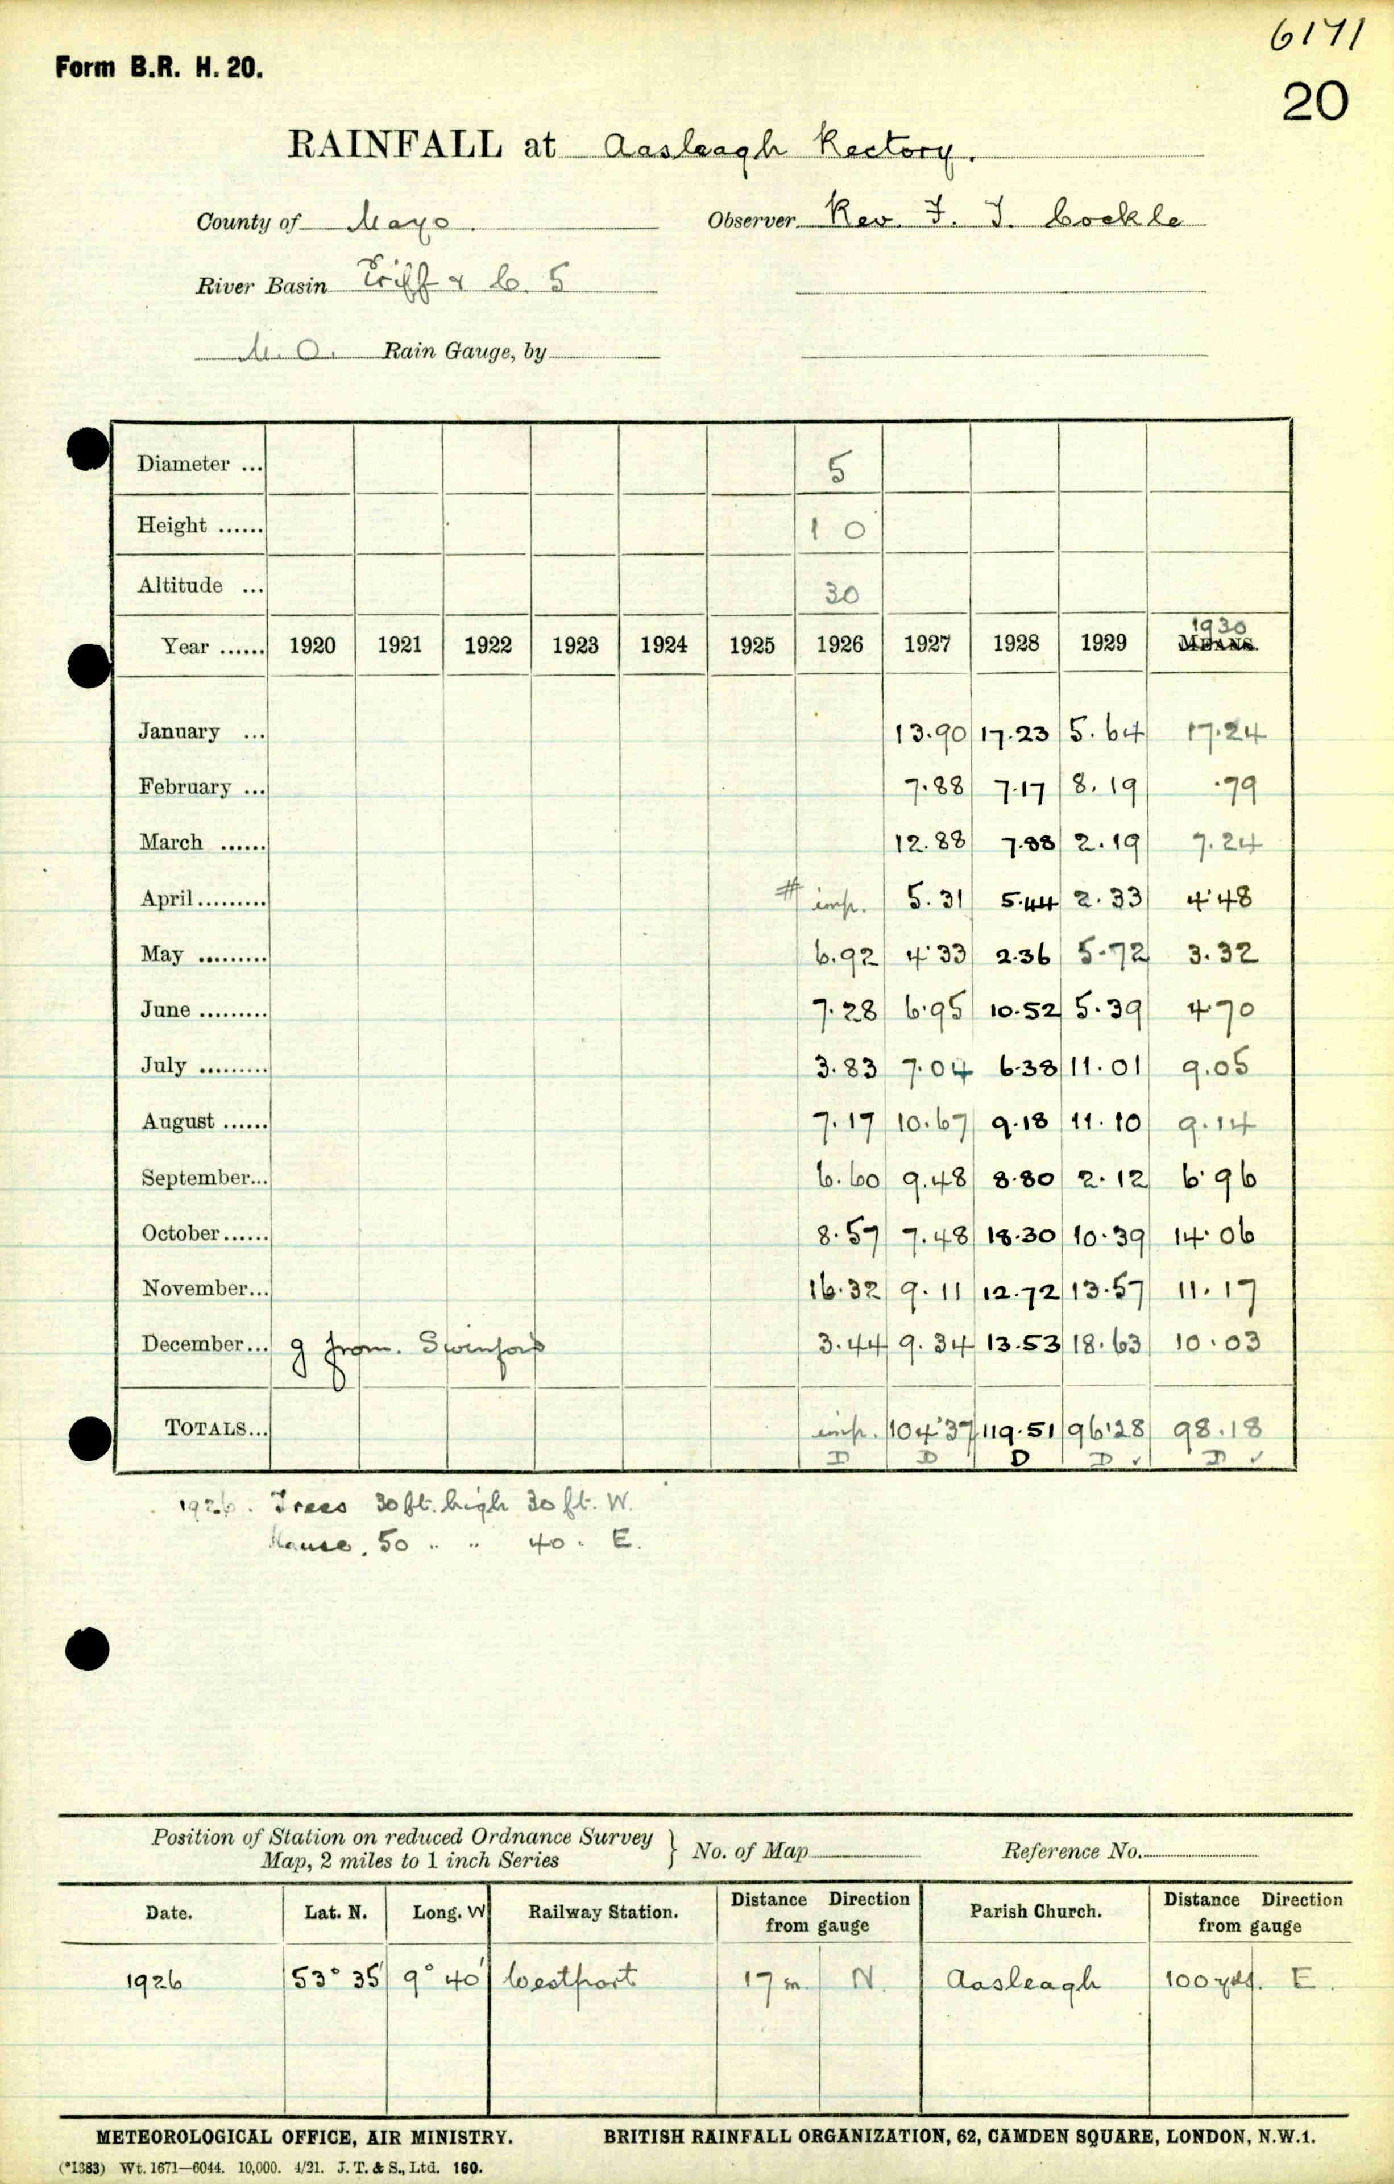 6171
Form B.R. H. 20.
20
RAINFALL at Aasleagh Rectory.
County of Mayo. Observer Rev. F. J. Cockle
River Basin Eriff & C. 5
M. O. Rain Gauge, by
Diameter ... 5
Height ...... 1 0
Altitude ... 30
Year ...... 1920 1921 1922 1923 1924 1925 1926 1927 1928 1929 1930 MEANS.
January ... 13.90 17.23 5.64 17.24
February ... 7.88 7.17 8.19 .79
March ...... 12.88 7.88 2.19 7.24
April......... # imp. 5.31 5.44 2.33 4.48
May ......... 6.92 4.33 2.36 5.72 3.32
June ......... 7.28 6.95 10.52 5.39 4.70
July ......... 3.83 7.04 6.38 11.01 9.05
August ...... 7.17 10.67 9.18 11.10 9.14
September... 6.60 9.48 8.80 2.12 6.96
October...... 8.57 7.48 18.30 10.39 14.06
November... 16.32 9.11 12.72 13.57 11.17
December... g from. Swinford 3.44 9.34 13.53 18.63 10.03
TOTALS... imp. 104.37 119.51 96.28 98.18
D D D D ✓ D ✓
1926. Trees 30 ft. high 30 ft. W.
House. 50 " " 40 " E.
Position of Station on reduced Ordnance Survey
Map, 2 miles to 1 inch Series } No. of Map Reference No.
Date. Lat. N. Long. W Railway Station. Distance Direction from gauge Parish Church. Distance Direction from gauge
1926 53° 35' 9° 40' Westport 17 m. N. Aasleagh 100 yds. E.
METEOROLOGICAL OFFICE, AIR MINISTRY. BRITISH RAINFALL ORGANIZATION, 62, CAMDEN SQUARE, LONDON, N.W.1.
(*1383) Wt. 1671—6044. 10,000. 4/21. J. T. & S., Ltd. 160.